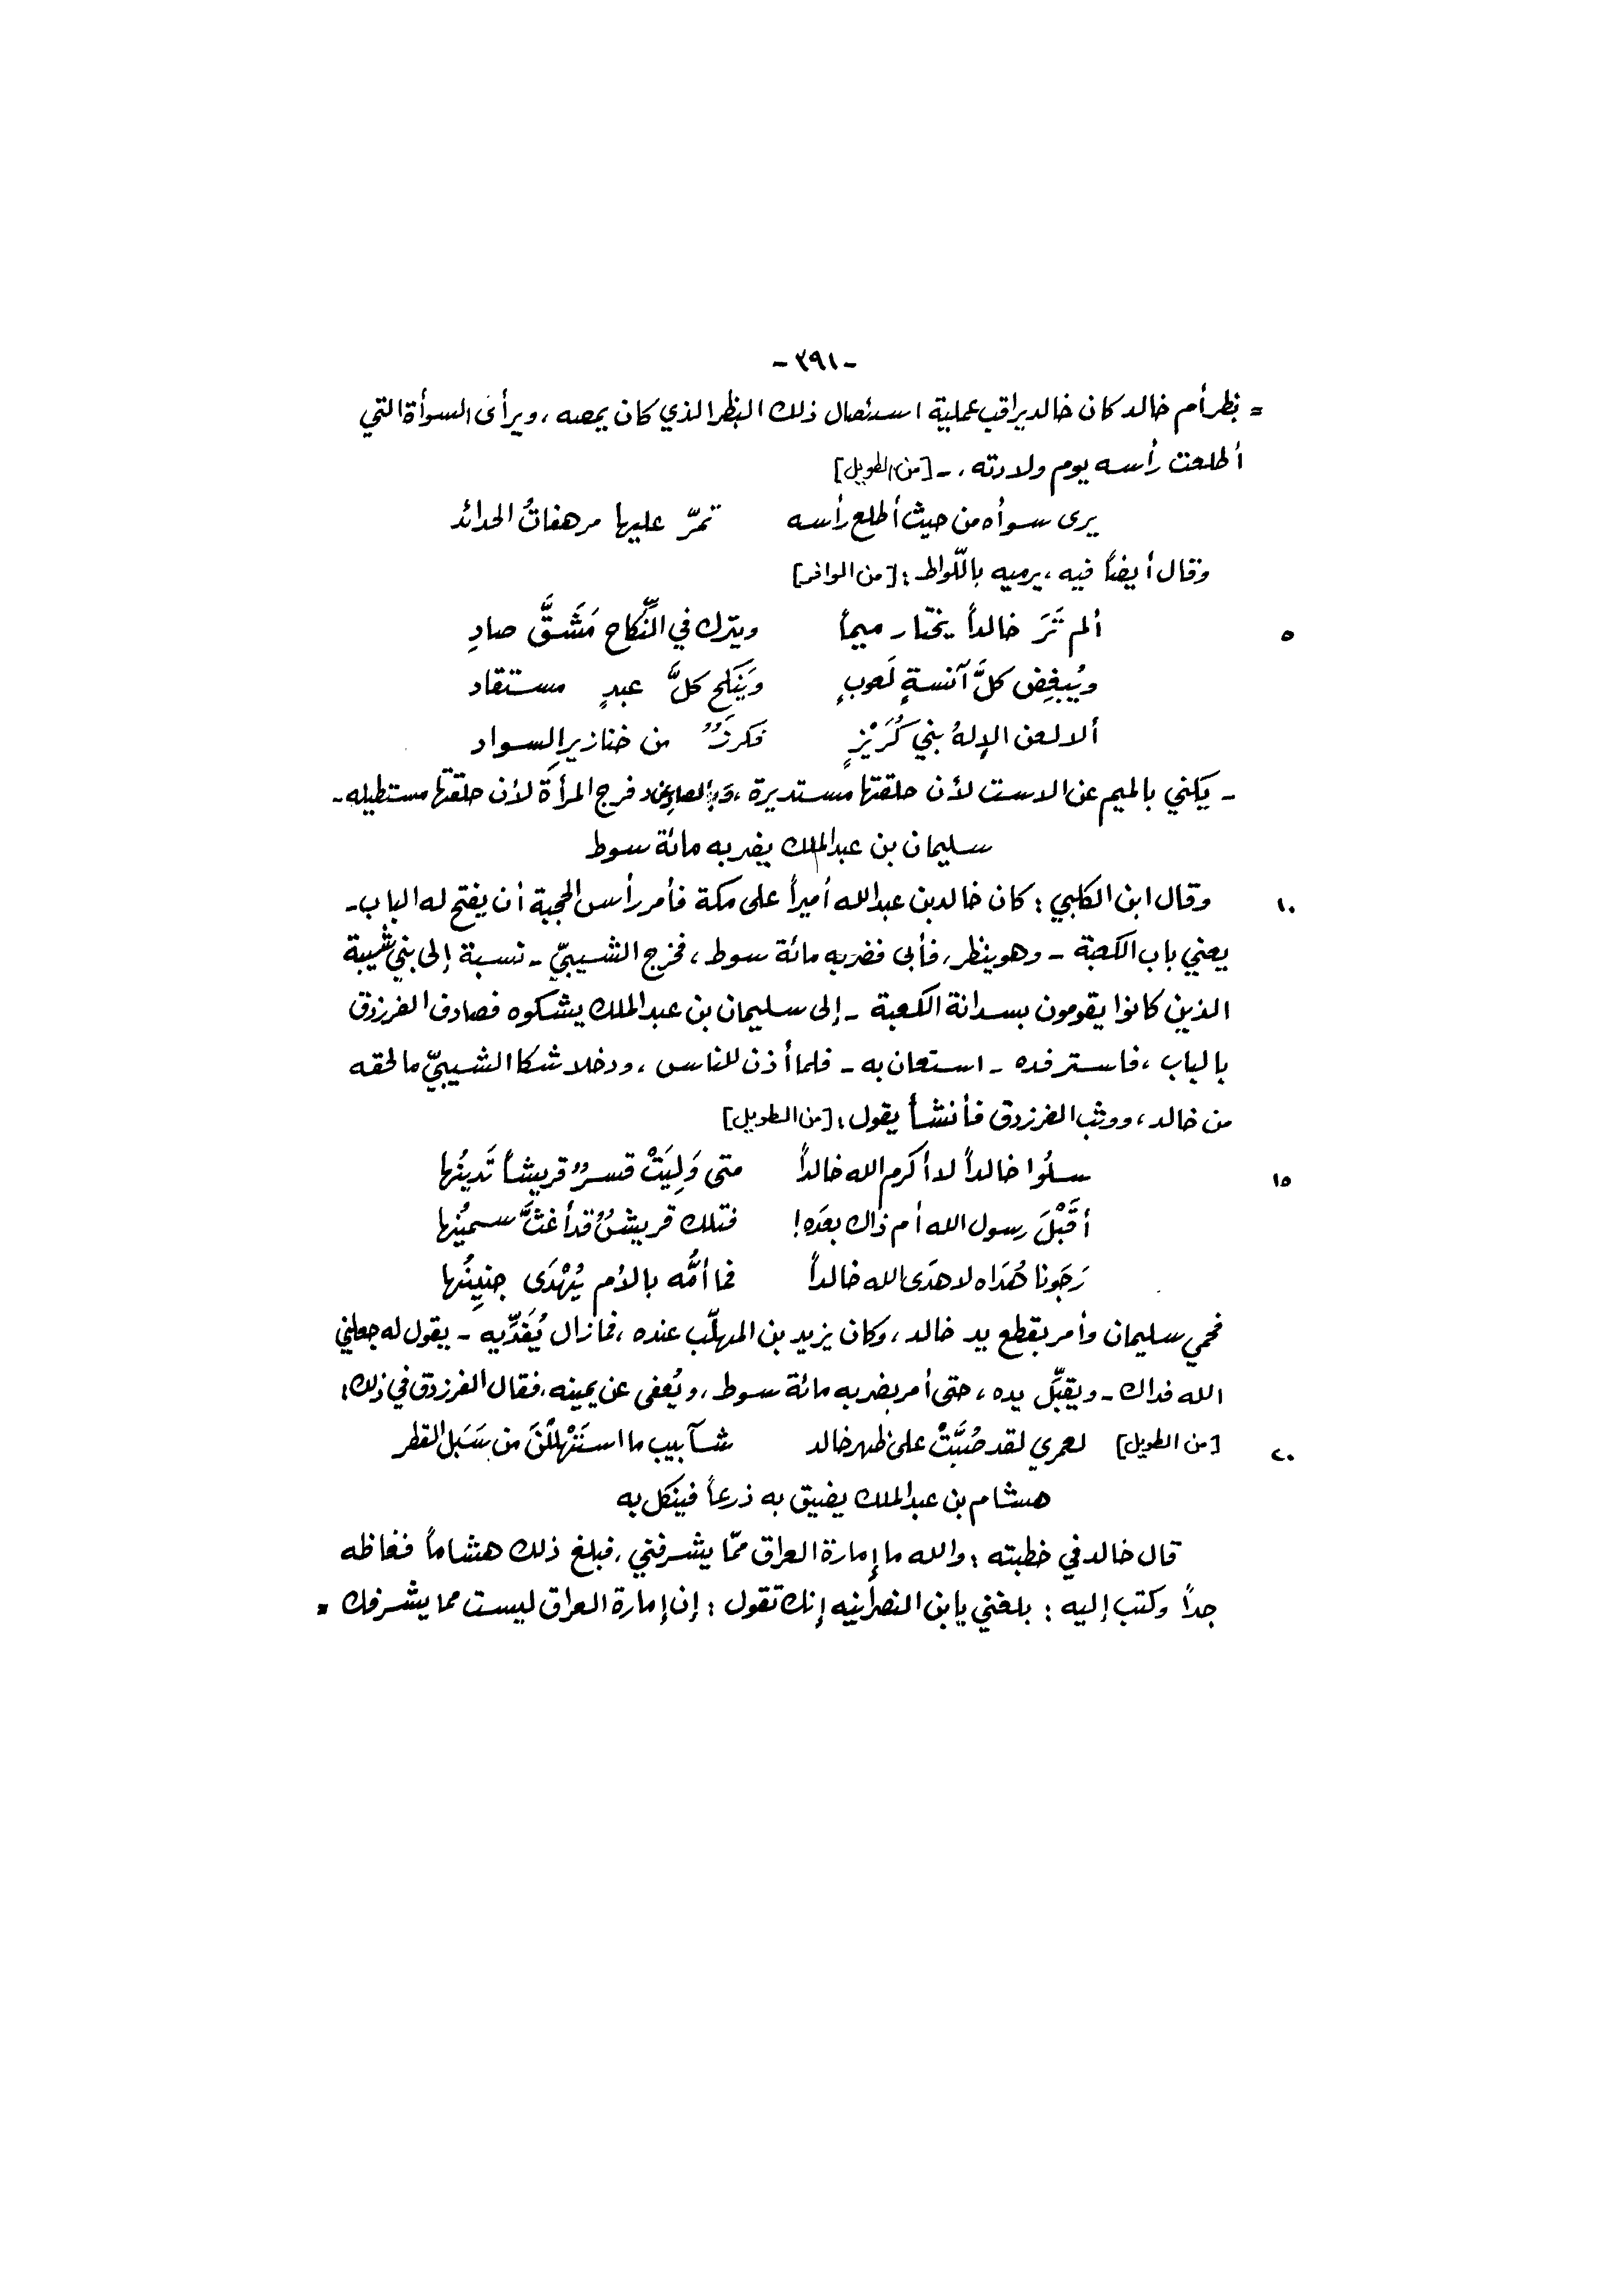 -٣٩١-
= بظر أم خالد كان خالد يراقب عملية استئصال ذلك البظر الذي كان يمصه ، ويرأى السوأة التي
أطلعت رأسه يوم ولادته . - [من الطويل]
يرى سوأه من حيث أطلع رأسه تمرّ عليها مرهفاتُ الحدائد
وقال أيضاً فيه ، يرميه باللّواط : [من الوافر]
٥ ألم تَرَ خالداً يختار ميماً ويترك في النِّكاح مَشَقَّ صادِ
ويُبغِض كلَّ آنسةٍ لَعوبٍ وَيَنكح كلَّ عبدٍ مستقاد
ألا لعن الإلهُ بني كُرَيْزٍ فكرزٌ من خنازيرِ السواد
- يكني بالميم عن الاست لأن حلقتها مستديرة ، وبالصاد عن فرج المرأة لأن حلقتها مستطيله -
سليمان بن عبد الملك يضربه مائة سوط
١٠ وقال ابن الكلبي : كان خالد بن عبد الله أميراً على مكة فأمر رأس الحجبة أن يفتح له الباب -
يعني باب الكعبة - وهو ينظر ، فأبى فضربه مائة سوط ، فخرج الشيبيّ - نسبة إلى بني شيبة
الذين كانوا يقومون بسدانة الكعبة - إلى سليمان بن عبد الملك يشكوه فصادف الفرزدق
بالباب ، فاسترفده - استعان به - فلما أذن للناس ، ودخلا شكا الشيبيّ ما لحقه
من خالد ، ووثب الفرزدق فأنشأ يقول : [من الطويل]
١٥ سلُوا خالداً لا أكرم الله خالداً متى وَلِيَتْ قسرٌ قريشاً تَدينُها
أقَبْلَ رسول الله أم ذاك بعدَه ! فتلك قريشٌ قد أغثَّ سمينُها
رَجَونا هُدَاه لا هدَى الله خالداً فما أمُّه بالأم يُهْدَى جنينُها
فحمي سليمان وأمر بقطع يد خالد ، وكان يزيد بن المهلّب عنده ، فما زال يُفَدِّيه - يقول له جعلني
الله فداك - ويقبِّل يده ، حتى أمر بضربه مائة سوط ، ويُعفى عن يمينه ، فقال الفرزدق في ذلك :
٢٠ [من الطويل] لعمري لقد صُبَّتْ على ظهر خالد شآبيب ما استَهْلَلْنَ من سَبَل القطر
هشام بن عبد الملك يضيق به ذرعاً فينكل به
قال خالد في خطبته : والله ما إمارة العراق ممّا يشرفني ، فبلغ ذلك هشاماً فغاظه
جداً وكتب إليه : بلغني يا بن النصرانيه إنك تقول : إن إمارة العراق ليست مما يشرفك =